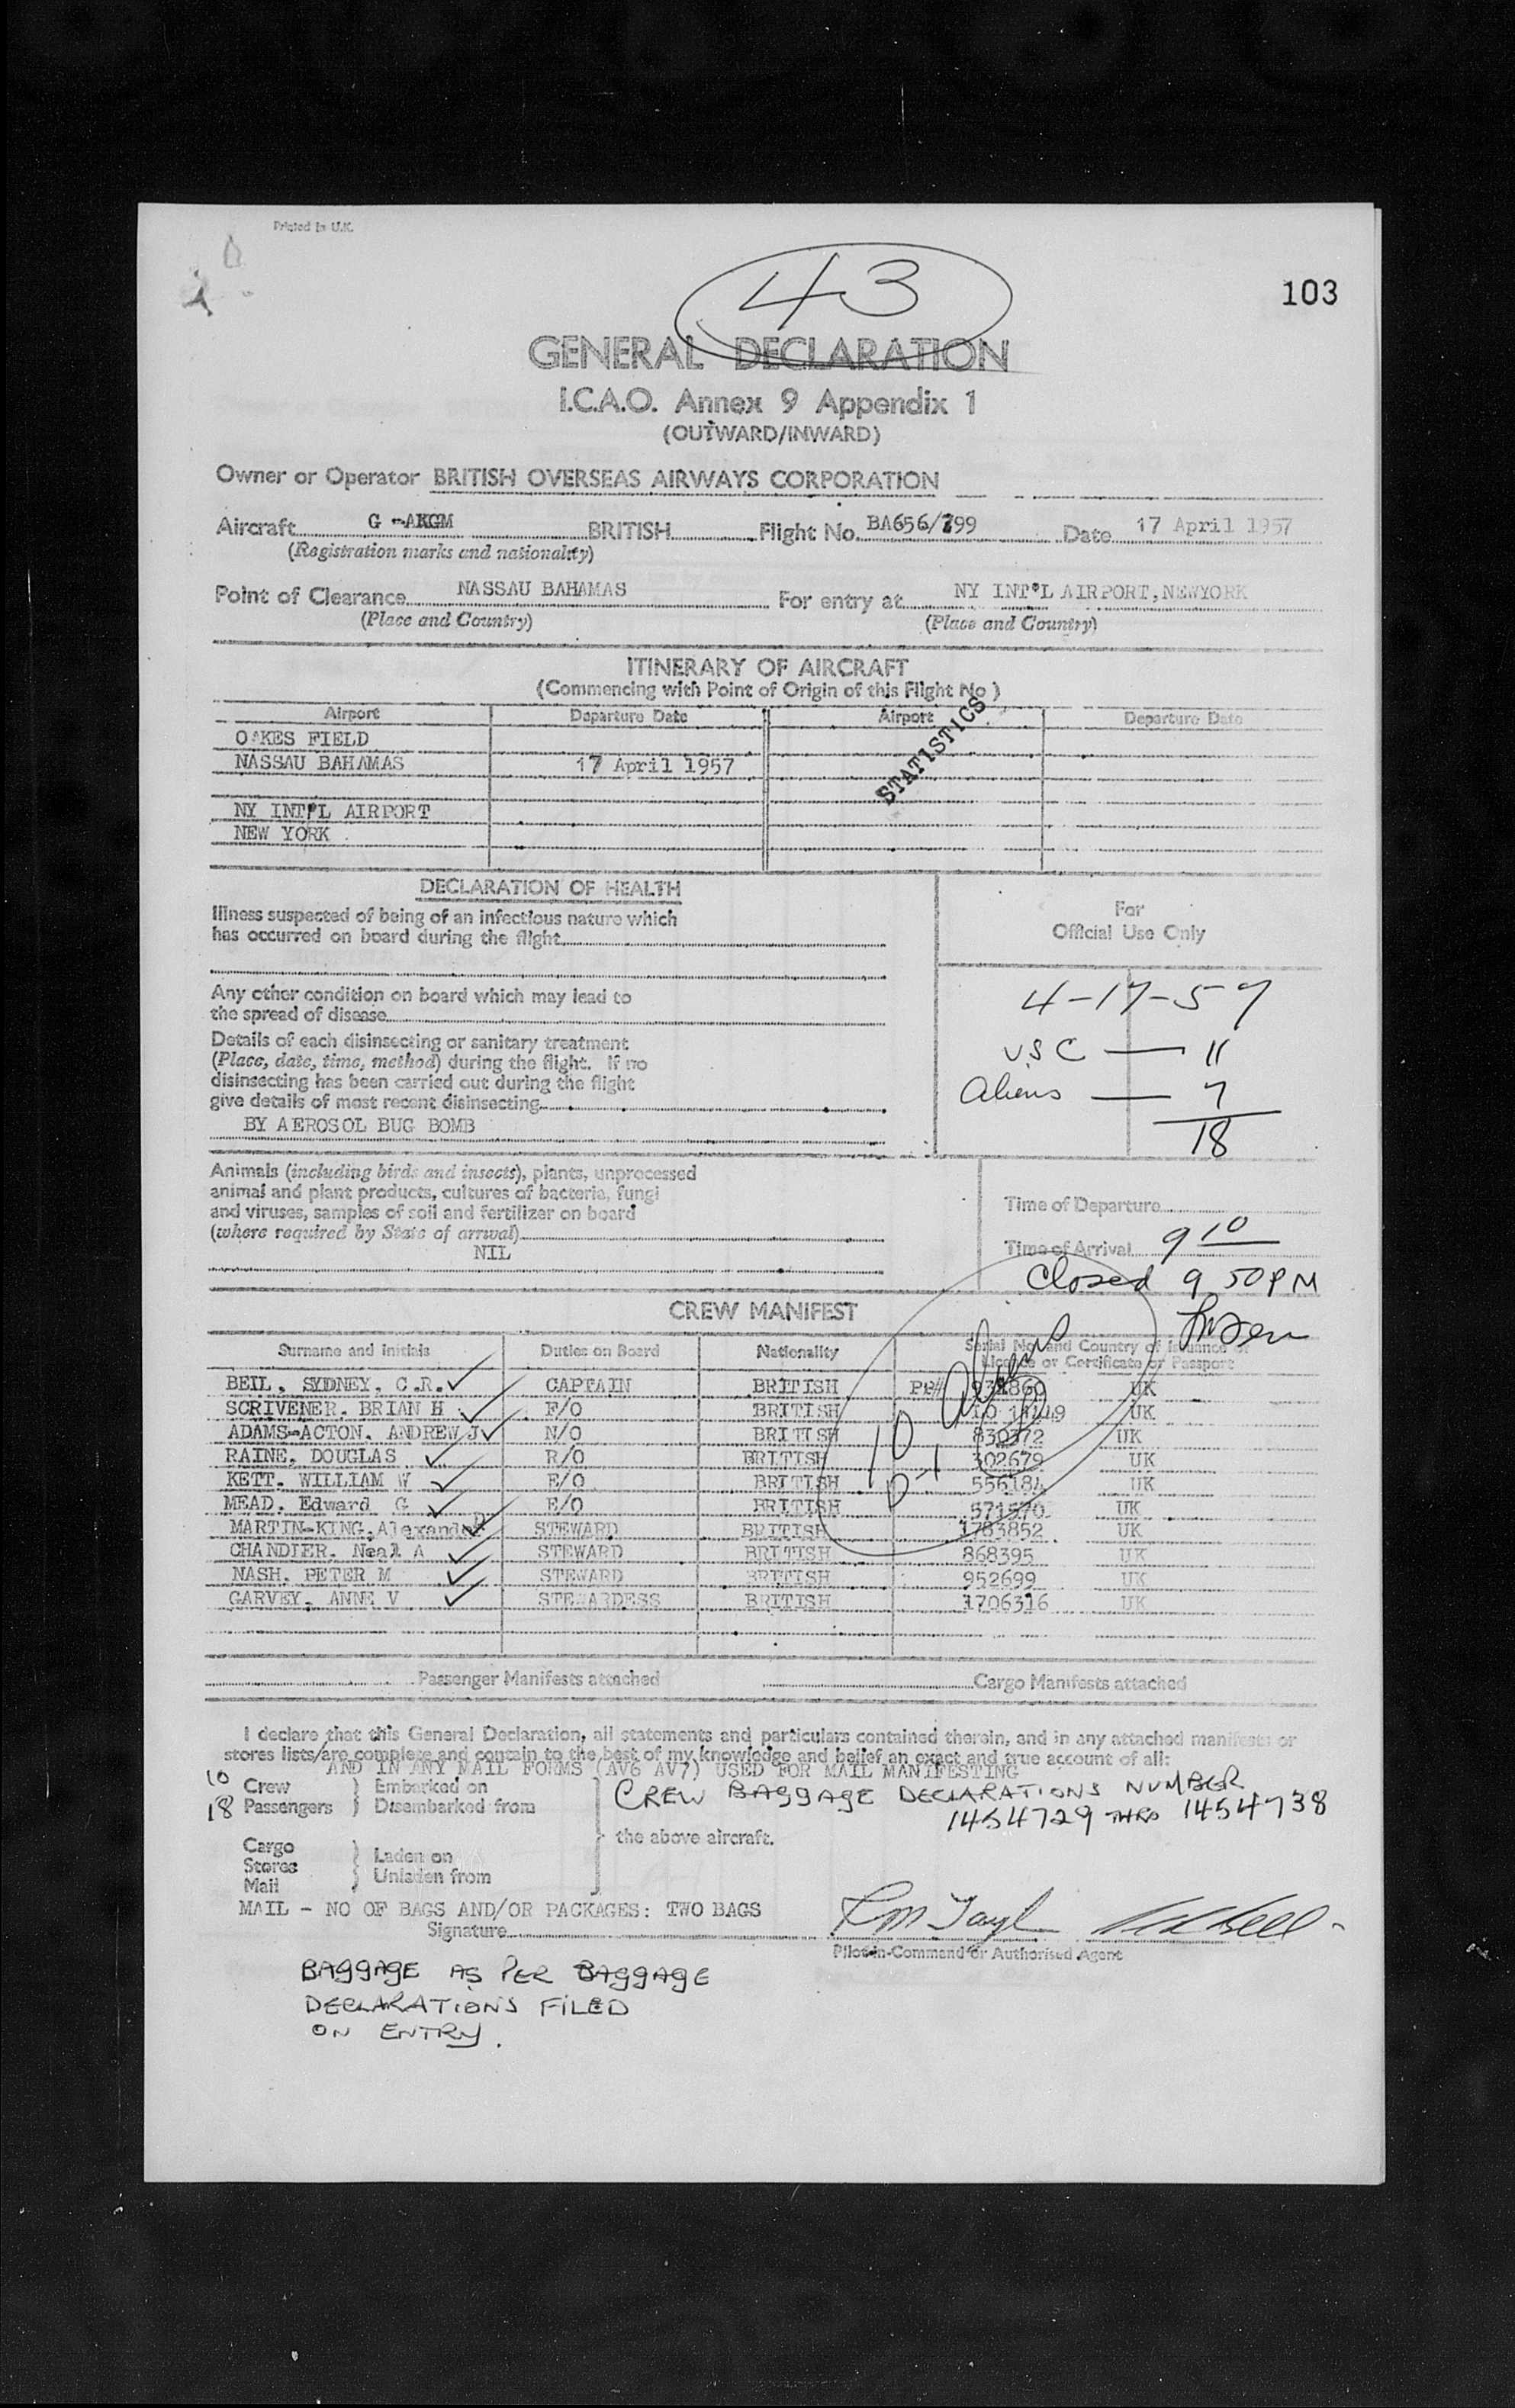 Printed in U.K.
43
103
GENERAL DECLARATION
I.C.A.O. Annex 9 Appendix 1
(OUTWARD/INWARD)
Owner or Operator BRITISH OVERSEAS AIRWAYS CORPORATION
Aircraft G -AKGM BRITISH Flight No. BA656/799 Date 17 April 1957
(Registration marks and nationality)
Point of Clearance NASSAU BAHAMAS For entry at NY INT'L AIRPORT, NEWYORK
(Place and Country) (Place and Country)
ITINERARY OF AIRCRAFT
(Commencing with Point of Origin of this Flight No )
Airport Departure Date Airport Departure Date
STATISTICS
OAKES FIELD
NASSAU BAHAMAS 17 April 1957
NY INT'L AIRPORT
NEW YORK
DECLARATION OF HEALTH
Illness suspected of being of an infectious nature which
has occurred on board during the flight
Any other condition on board which may lead to
the spread of disease
Details of each disinsecting or sanitary treatment
(Place, date, time, method) during the flight. If no
disinsecting has been carried out during the flight
give details of most recent disinsecting
BY AEROSOL BUG BOMB
For
Official Use Only
4-17-57
USC — 11
Aliens — 7
18
Animals (including birds and insects), plants, unprocessed
animal and plant products, cultures of bacteria, fungi
and viruses, samples of soil and fertilizer on board
(where required by State of arrival)
NIL
Time of Departure
Time of Arrival 9 10
Closed 9 50 PM
CREW MANIFEST
Surname and initials Duties on Board Nationality Serial No. and Country of Issuance of
Licence or Certificate or Passport
10 Aliens
D-1
BEIL, SYDNEY, C.R. CAPTAIN BRITISH PP# UK
SCRIVENER. BRIAN H F/O BRITISH UK
ADAMS-ACTON. ANDREW J N/O BRITISH 830372 UK
RAINE, DOUGLAS R/O BRITISH 302679 UK
KETT. WILLIAM W E/O BRITISH 556184 UK
MEAD. Edward G E/O BRITISH 571570 UK
MARTIN-KING, Alexander D STEWARD BRITISH 1783852 UK
CHANDIER. Neal A STEWARD BRITISH 868395 UK
NASH. PETER M STEWARD BRITISH 952699 UK
GARVEY. ANNE V STEWARDESS BRITISH 1706316 UK
Passenger Manifests attached Cargo Manifests attached
I declare that this General Declaration, all statements and particulars contained therein, and in any attached manifests or
stores lists/are complete and contain to the best of my knowledge and belief an exact and true account of all:
AND IN ANY MAIL FORMS (AV6 AV7) USED FOR MAIL MANIFESTING
10 Crew } Embarked on
18 Passengers } Disembarked from
CREW BAGGAGE DECLARATIONS NUMBER
1454729 THRO 1454738
the above aircraft.
Cargo
Stores } Laden on
Mail } Unladen from
MAIL - NO OF BAGS AND/OR PACKAGES: TWO BAGS
Signature
Pilot-in-Command or Authorised Agent
BAGGAGE AS PER BAGGAGE
DECLARATIONS FILED
ON ENTRY.